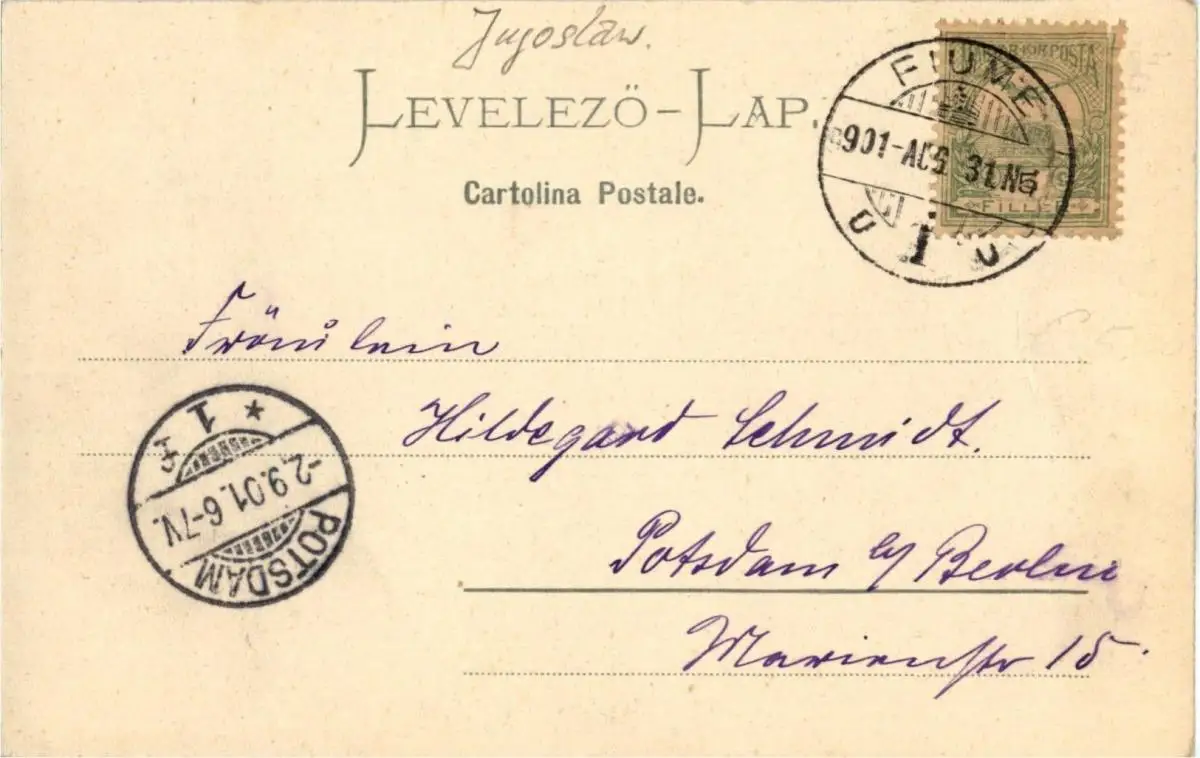 Jugoslaw.
LEVELEZŐ-LAP.
Cartolina Postale.
MAGYAR KIR. POSTA
FILLER
FIUME
901-AUG 31.N5
1
Fräulein
Hildegard Schmidt.
Potsdam b/ Berlin
Marienstr 15.
1 *
-2.9.01.6-7V.
POTSDAM